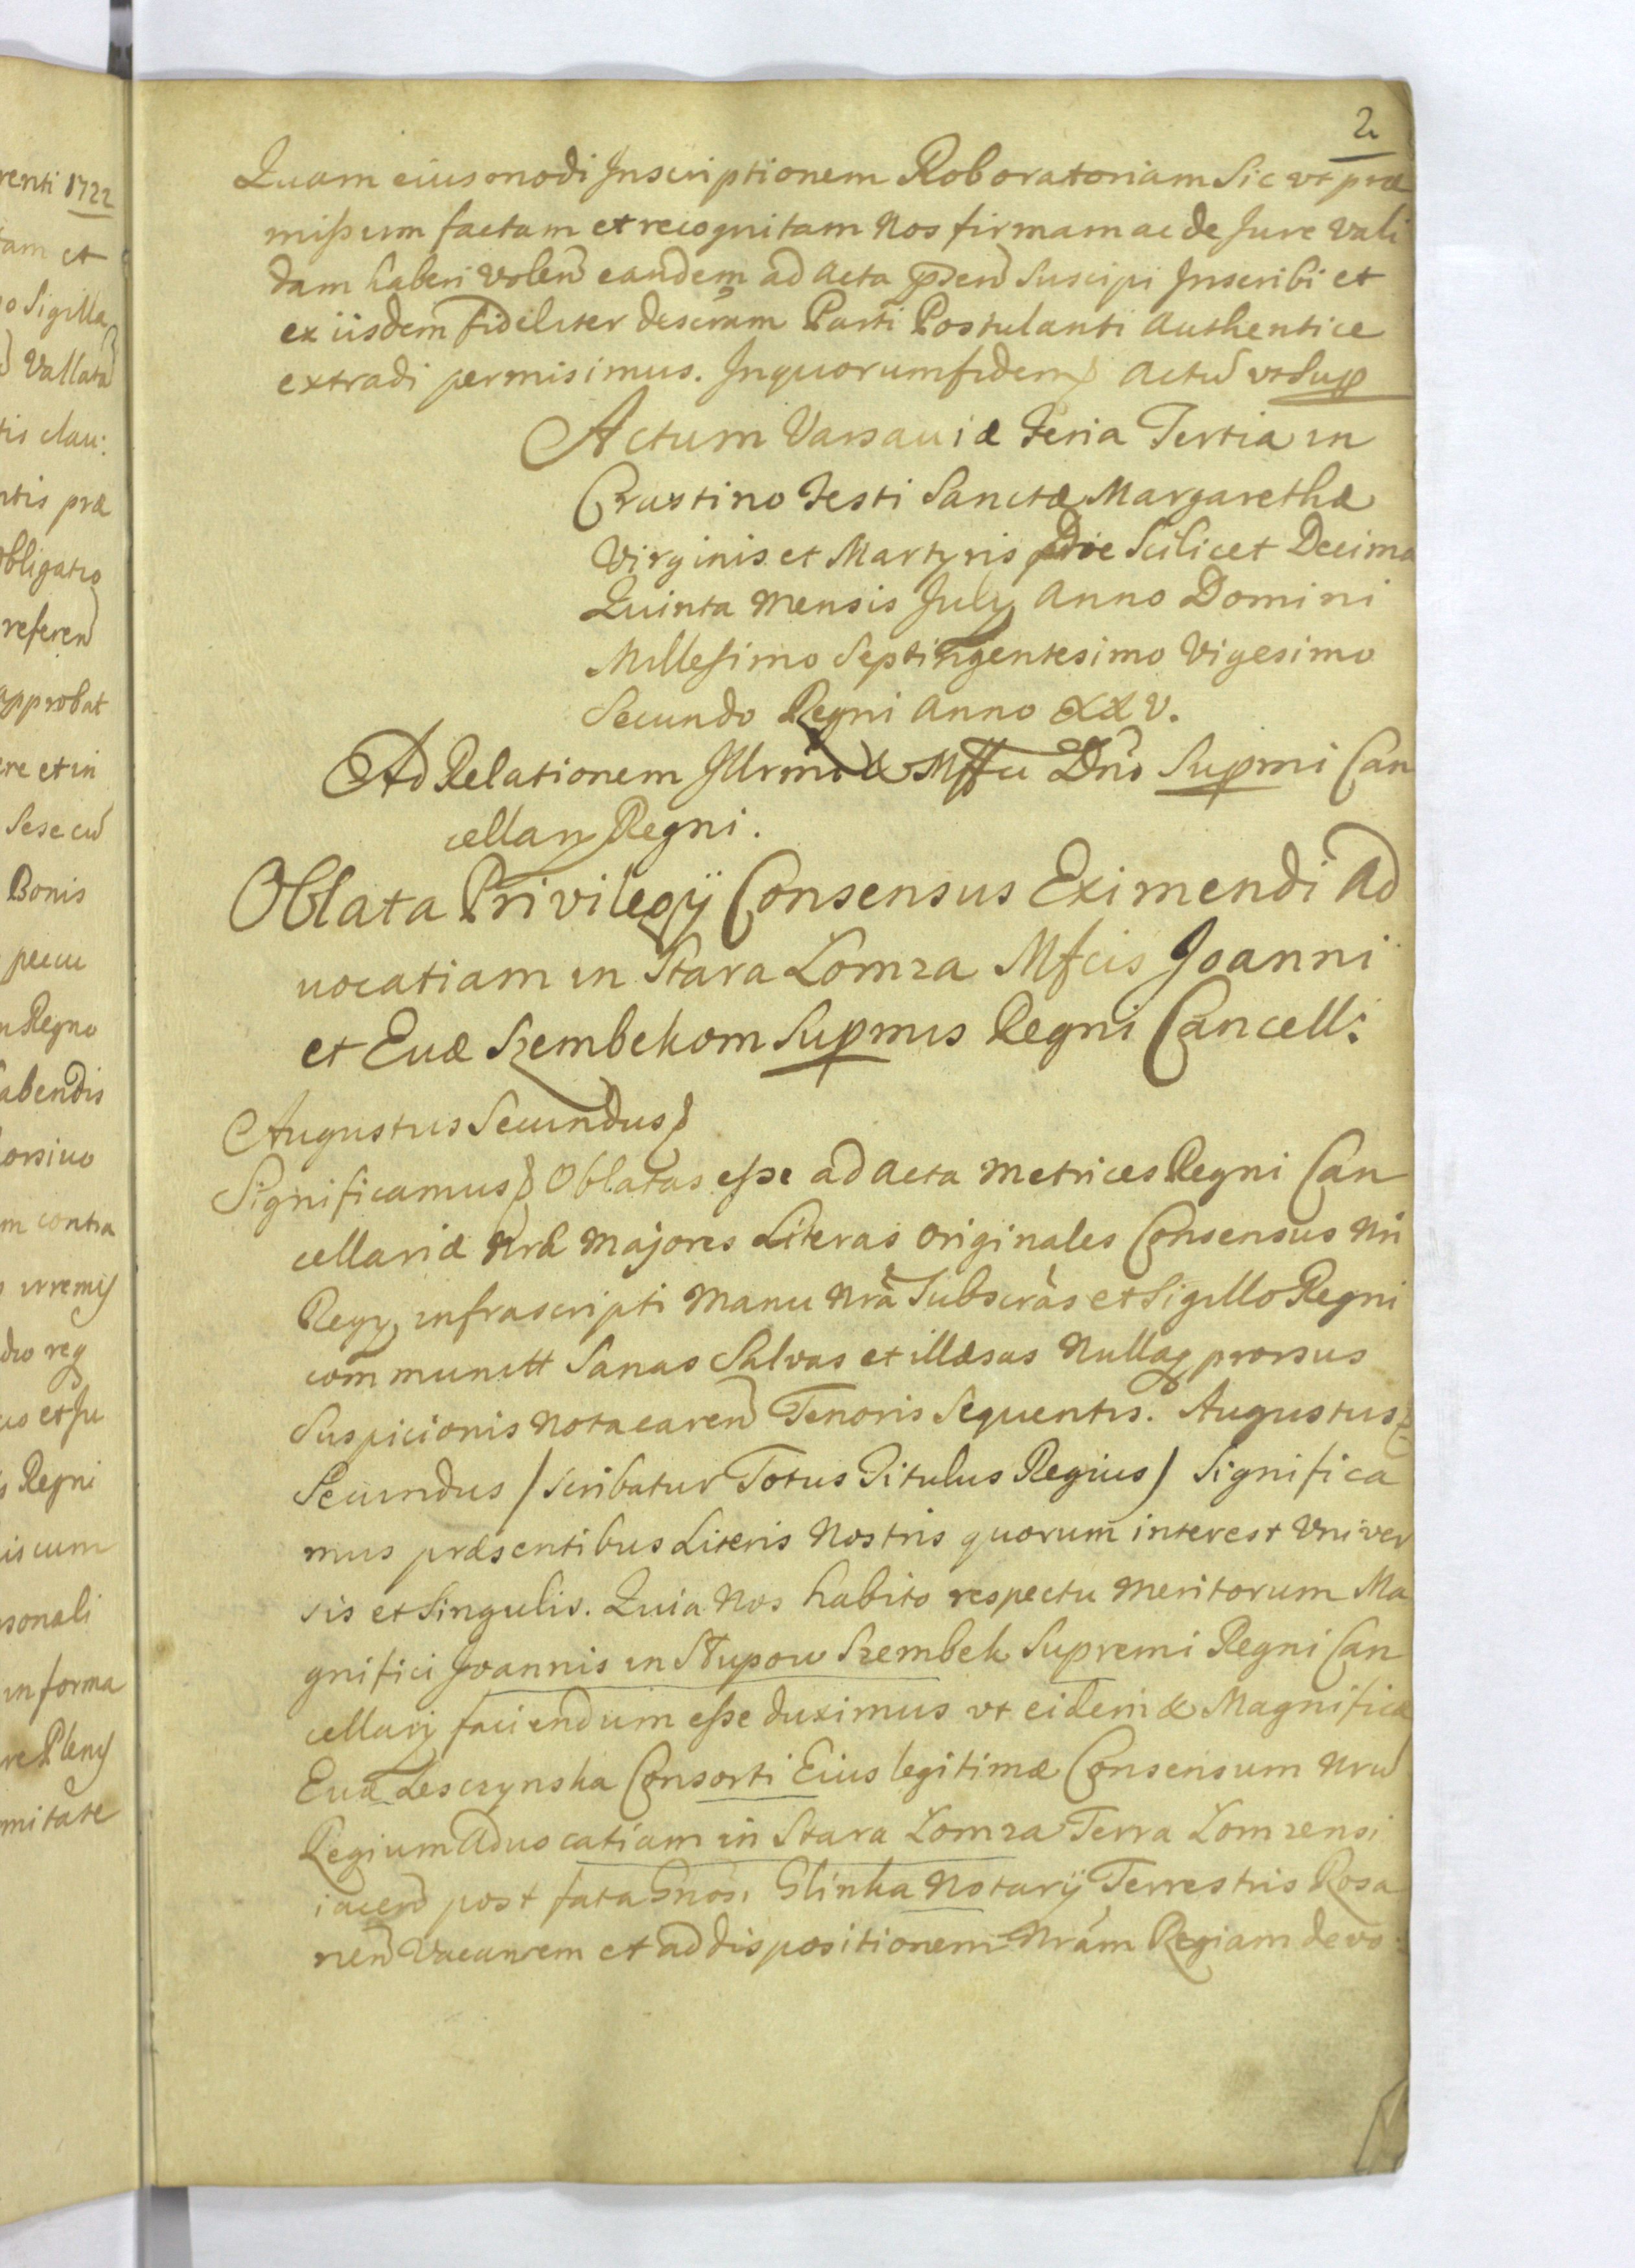 2
Quam eiusmodi Inscriptionem Roboratoriam Sic vt præ
mißum factam et recognitam Nos firmam ac de Jure Vali
dam haberi Volen̄ eandem ad Acta p̄sen̄ Suscipi Inscribi et
ex iisdem fideliter descrām Parti Postulanti Authentice
extradi permisimus. In quorum fidem Actū vt Sup
Actum Varsauiæ Feria Tertia in
Crastino Festi Sanctæ Margarethæ
Virginis et Martyris die Scilicet Decima
Quinta Mensis July Anno Domini
Millesimo Septingentesimo Vigesimo
Secundo Regni Anno XXV.
Ad Relationem Illrmi & Mffci Dn̄i Supmi Can
cellary Regni.
Oblata Privilegÿ Consensus Eximendi Ad
uocatiam in Stara Lomza Mfcis Joanni
et Euæ Szembekom Supmis Regni Cancell:
Augustus Secundus
Significamus Oblatas eße ad Acta Metrices Regni Can
cellariæ Nræ Majores Literas Originales Consensus Nri
Regy infrascripti Manu Nrā Subscrās et Sigillo Regni
communitt Sanas Salvas et illæsas Nullaq prorsus
Suspicionis Nota caren̄ Tenoris Sequentis. Augustus
Secundus / Scribatur Totus Titulus Regius / Significa
mus præsentibus Literis Nostris quorum interest Vniver
sis et Singulis. Quia Nos habito respectu Meritorum Ma
gnifici Joannis in Słupow Szembek Supremi Regni Can
cellarÿ faciendum eße duximus vt eidem & Magnificæ
Euæ Lesczynska Consorti Eius legitimæ Consensum Nrū
Regium Aduocatiam in Stara Lomza Terra Lomzensi
iacen̄ post fata Gnosi Glinka Notarÿ Terrestris Rosa
nen̄ Vacantem et ad dispositionem Nrām Regiam devo